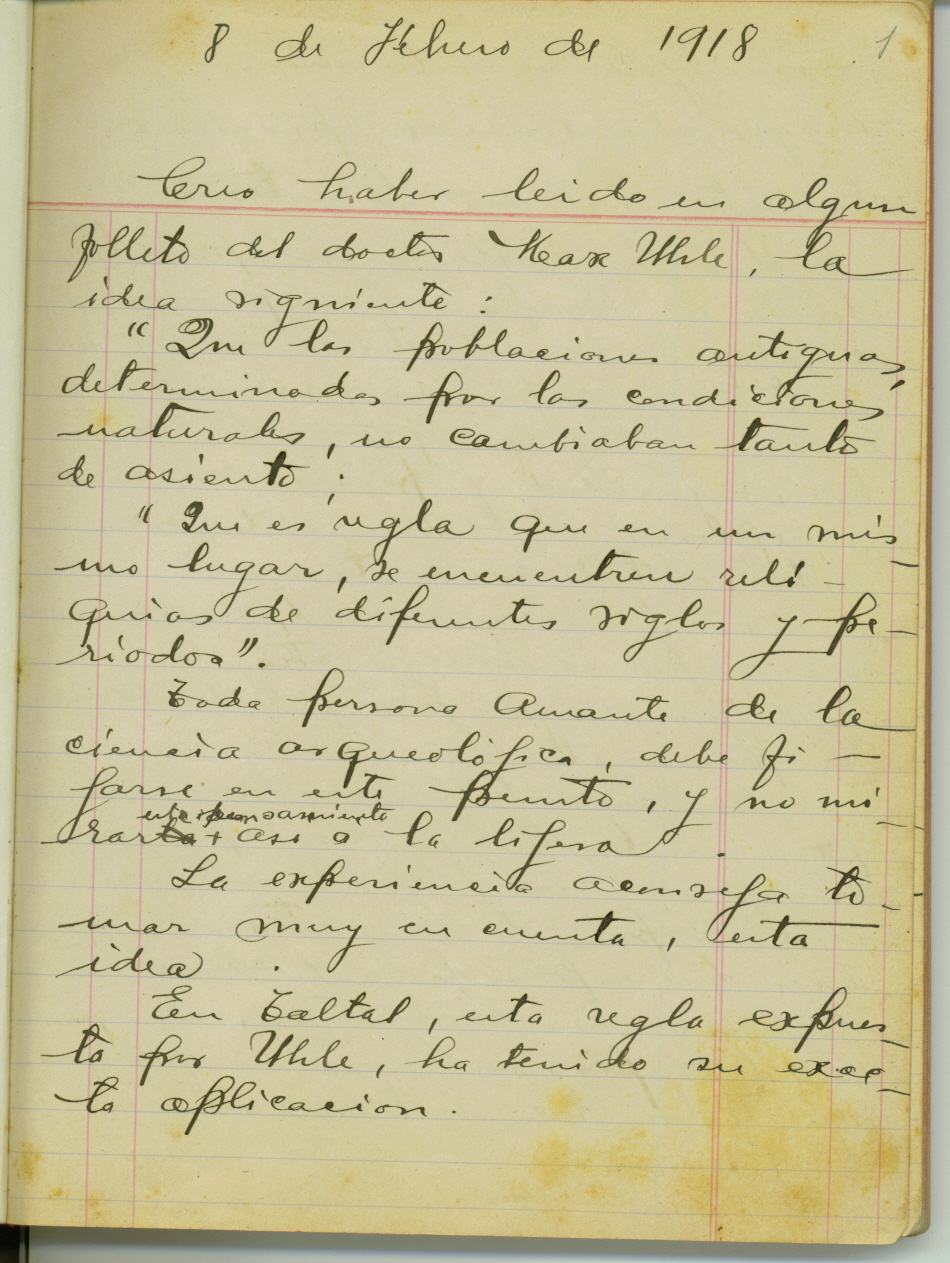 8 de Febrero de 1918 1
Creo haber leido en algun
folleto del doctor Max Uhle, la
idea siguiente :
" Que las poblaciones antiguas,
determinadas por las condiciones
naturales, no cambiaban tanto
de asiento ;
" Que es regla que en un mis-
mo lugar, se encuentren reli-
quias de diferentes siglos y pe-
riodos".
Toda persona amante de la
ciencia arqueolójica, debe fi-
jarse en este punto, y no mi-
este pensamiento
rarla + asi a la lijera .
La experiencia aconseja to-
mar muy en cuenta, esta
idea .
En Taltal, esta regla expues-
ta por Uhle, ha tenido su exac-
ta aplicacion.